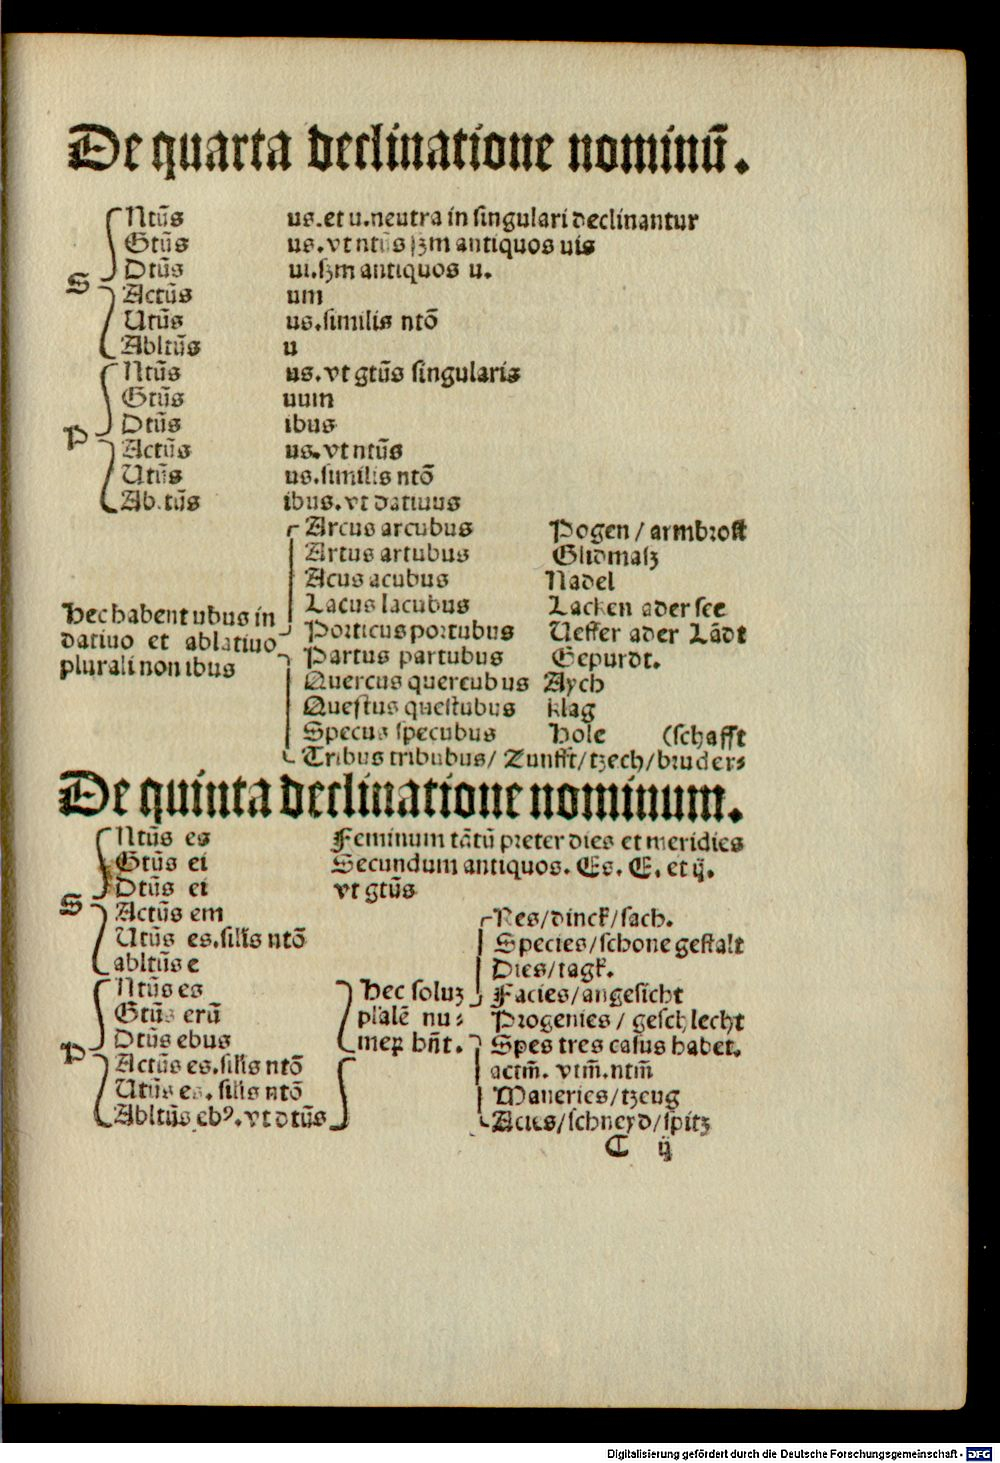 De quarta declinatione nominū.
Ntūs us.et u.neutra in singulari declinantur
Gtūs us.vt ntūs ſꝫm antiquos uis
Dtūs ui.ſꝫm antiquos u.
S
Actūs um
Utūs us.similis ntō
Abltūs u
Ntūs us.vt gtūs singularis
Gtūs uum
Dtūs ibus
P
Actūs us.vt ntūs
Utūs us.similis ntō
Ab.tūs ibus.vt datiuus
Arcus arcubus Pogen / armbrost
Artus artubus Glidmaſz
Acus acubus Nadel
Lacus lacubus Lacken ader see
Hec habent ubus in
datiuo et ablatiuo
plurali non ibus
Porticus portubus Ueffer ader Lādt
Partus partubus Gepurdt.
Quercus quercubus Aych
Questus questubus klag
Specus specubus Hole (schafft
Tribus tribubus/ Zunfft/tzech/bruders
De quinta declinatione nominum.
Ntūs es Feminum tātū preter dies et meridies
Gtūs ei Secundum antiquos. Es. E. et ij.
Dtūs ei vt gtūs
S
Actūs em
Utūs es.silis ntō
abltūs e
Res/dinck/sach.
Species/schone gestalt
Dies/tagk.
Ntūs es
Gtūs erū
Dtūs ebus
P
Actūs es.silis ntō
Utūs es. silis ntō
Abltūs ebꝰ.vt dtūs
Hec soluꝫ
plalē nu⸗
meꝝ hn̄t.
Facies/angesicht
Progenies / geschlecht
Spes tres casus habet.
actm̄. vtm̄.ntm̄
Maneries/tzeug
Acies/schneyd/spitz
C ij
Digitalisierung gefördert durch die Deutsche Forschungsgemeinschaft - DFG